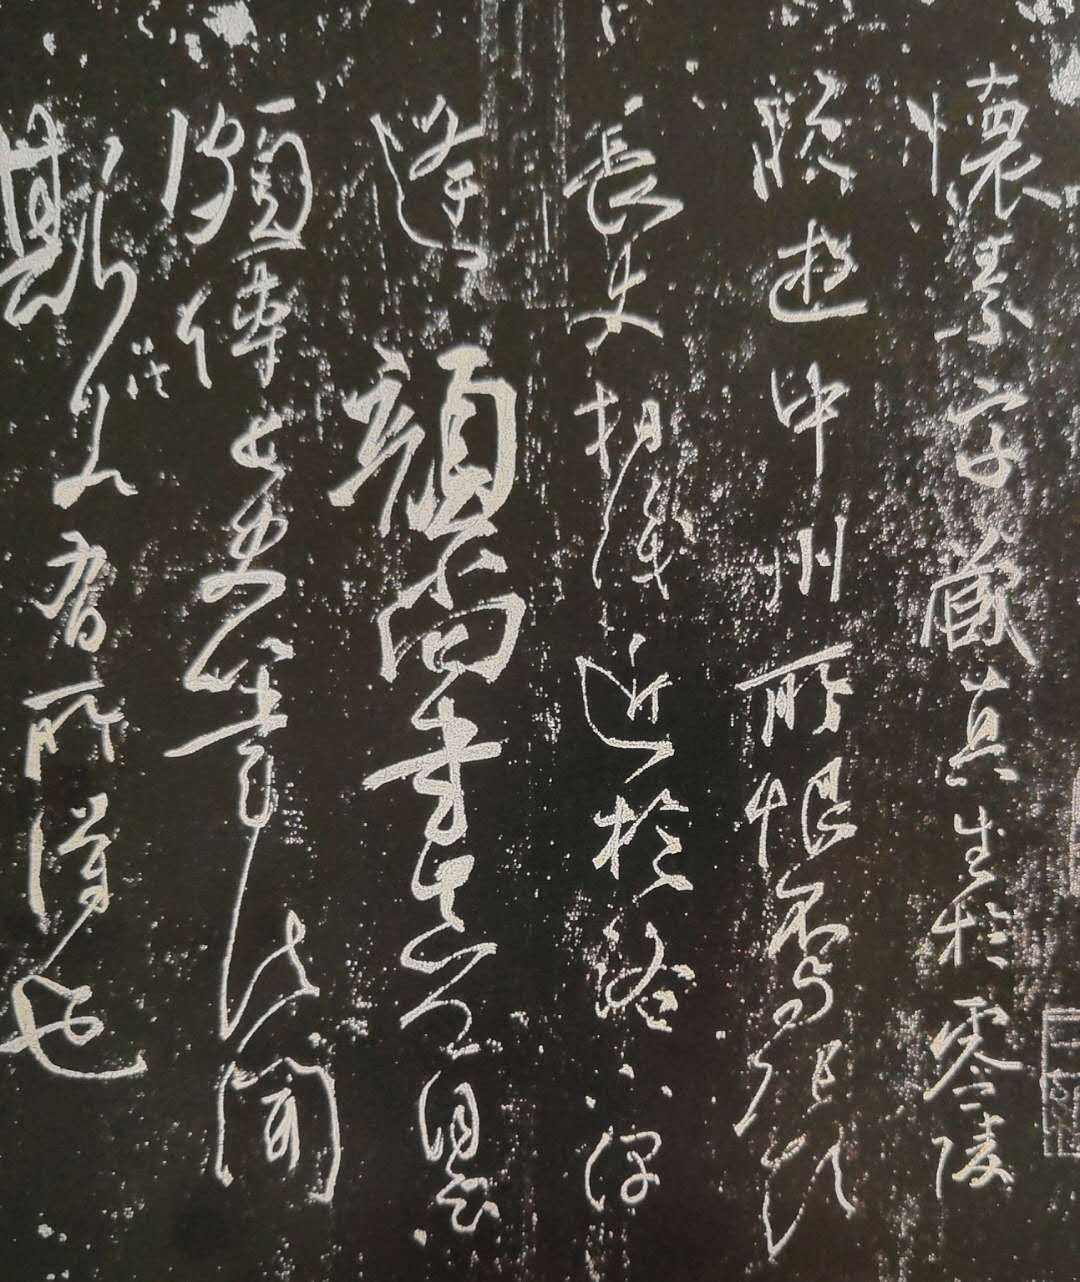 懷素字藏真生於零陵
晚遊中州所恨不與張顛
長史相識近於洛下偶
逢顏尚書真卿自云
頗傳長史筆法聞
斯八法若有所得也